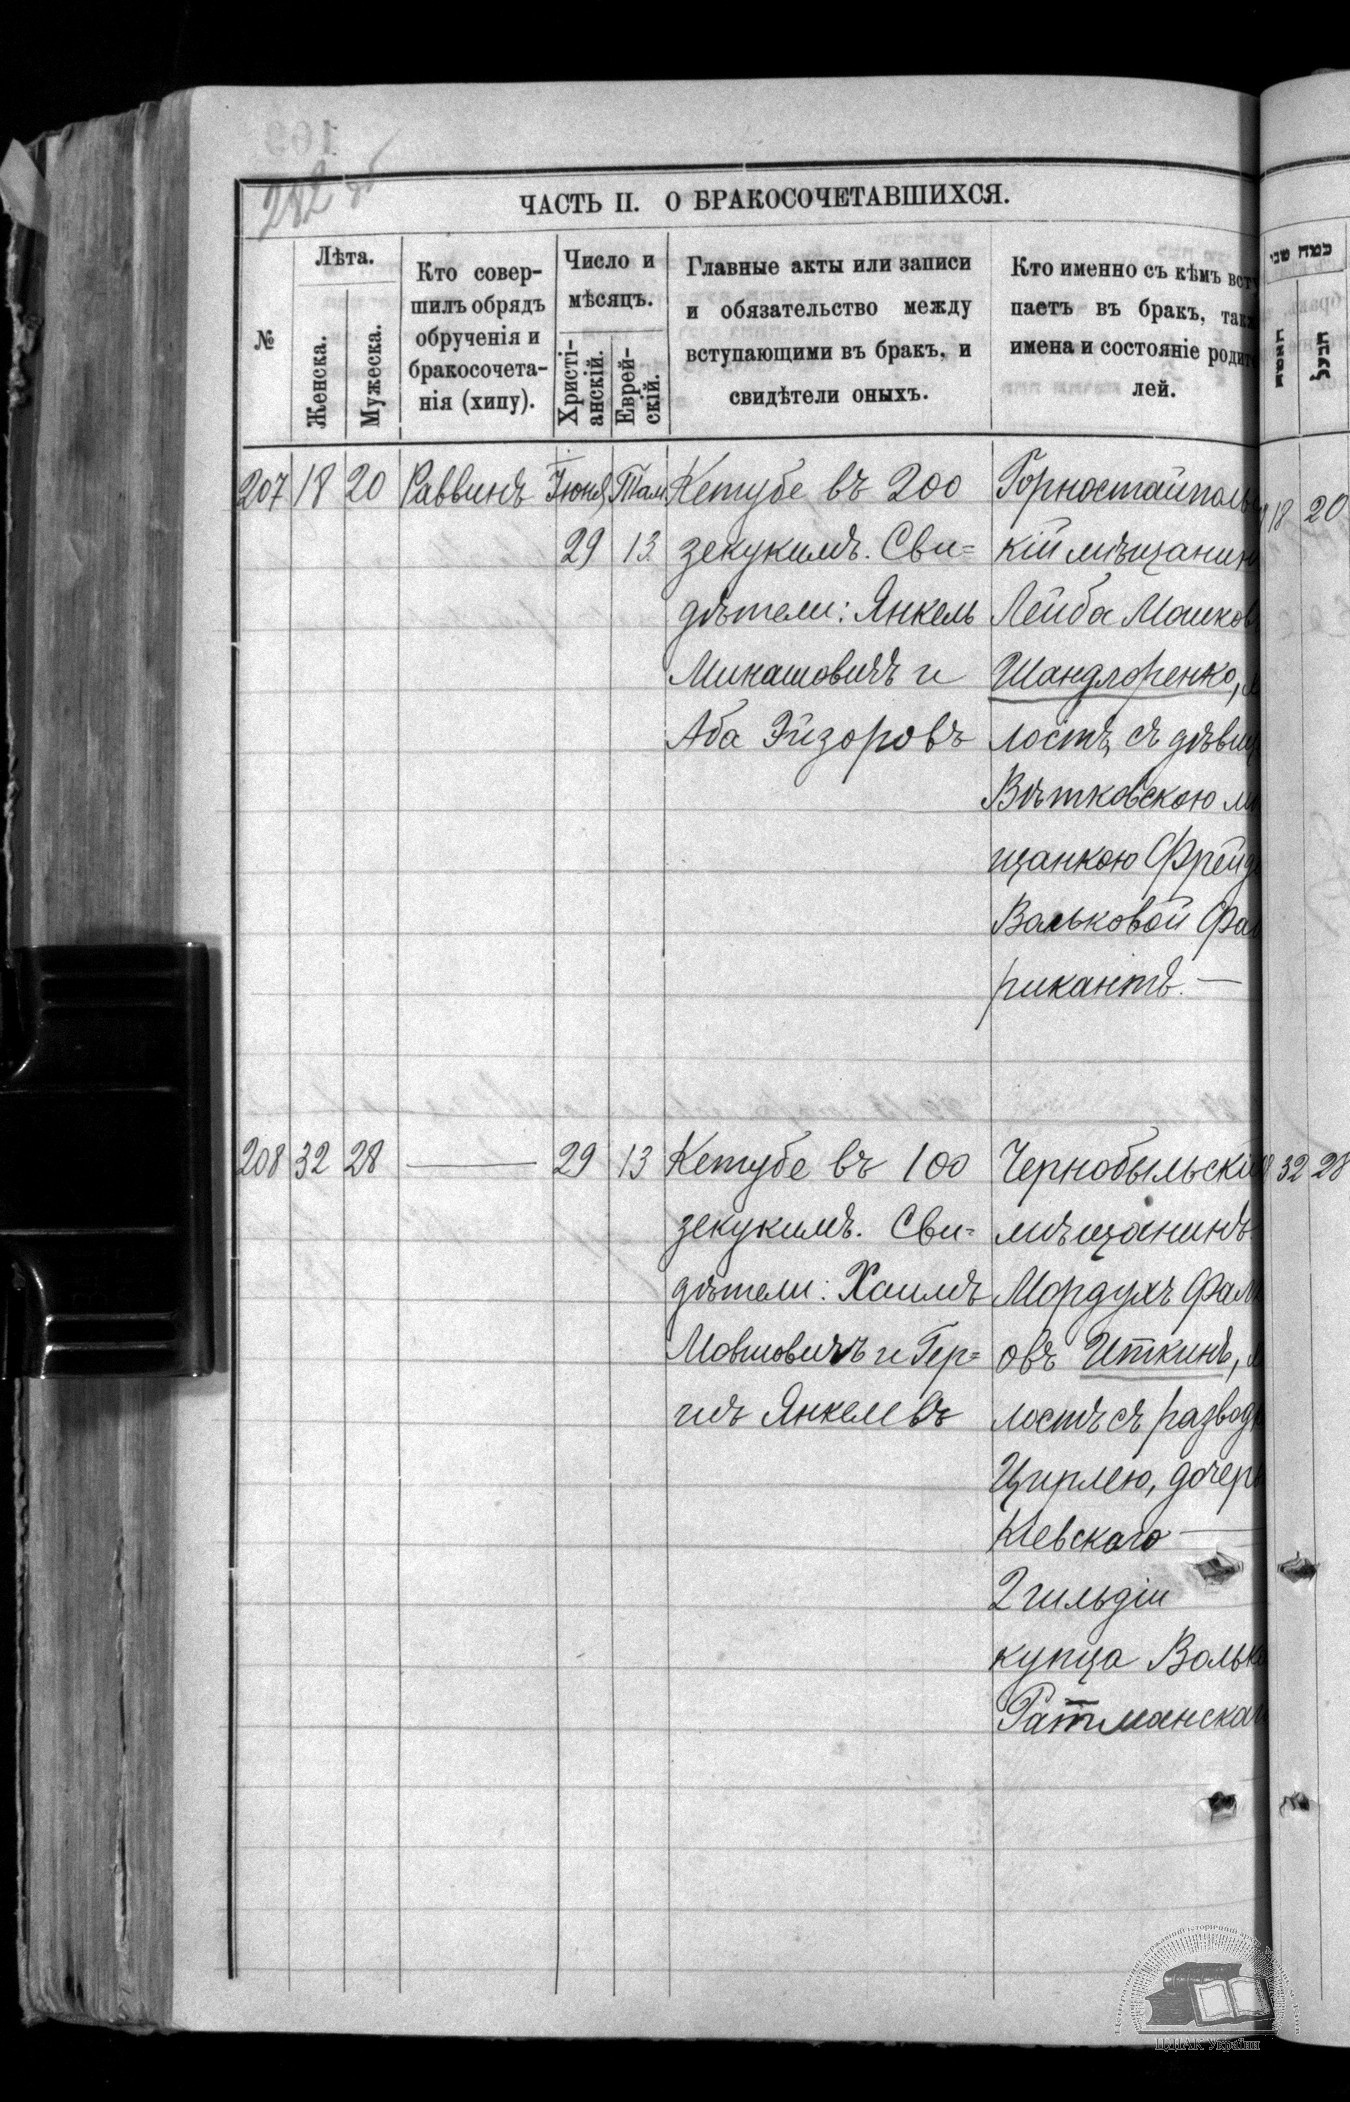 282 об
ЧАСТЬ II. О БРАКОСОЧЕТАВШИХСЯ.
№
Лѣта.
Женска.
Мужеска.
Кто совер-
шилъ обрядъ
обрученія и
бракосочета-
нія (хипу).
Число и
мѣсяцъ.
Христі-
анскій.
Еврей-
скій.
Главные акты или записи
и обязательство между
вступающими въ бракъ, и
свидѣтели оныхъ.
Кто именно съ кѣмъ всту
паетъ въ бракъ, такж
имена и состояніе родите
лей.
207 18 20 Раввинъ Іюня Там
29 13
Кетубе въ 200
зекукимъ. Сви=
дѣтели: Янкель
Минашовичъ и
Аба Эйзоровъ
Горностайполь
кій мѣщанин
Лейба Машков
Шандлоренко,
лостъ, съ дѣвиц
Вѣтковскою м
щанкою Фрейд
Вальковой Фаб
рикантъ.—
208 32 28 — 29 13
Кетубе въ 100
зекукимъ. Сви=
дѣтели: Хаимъ
Мовшовичъ и Гер=
шъ Янкелевъ
Чернобыльскій
мѣщанинъ
Мордухъ Фалк
овъ Иткинъ,
лостъ съ развод
Цирлею, дочер
Кіевскаго —
2 гильдіи
купца Вольк
Ратманскаг
כמה שני
האשה
הבעל
18 20
32 28
ЦДІАК України